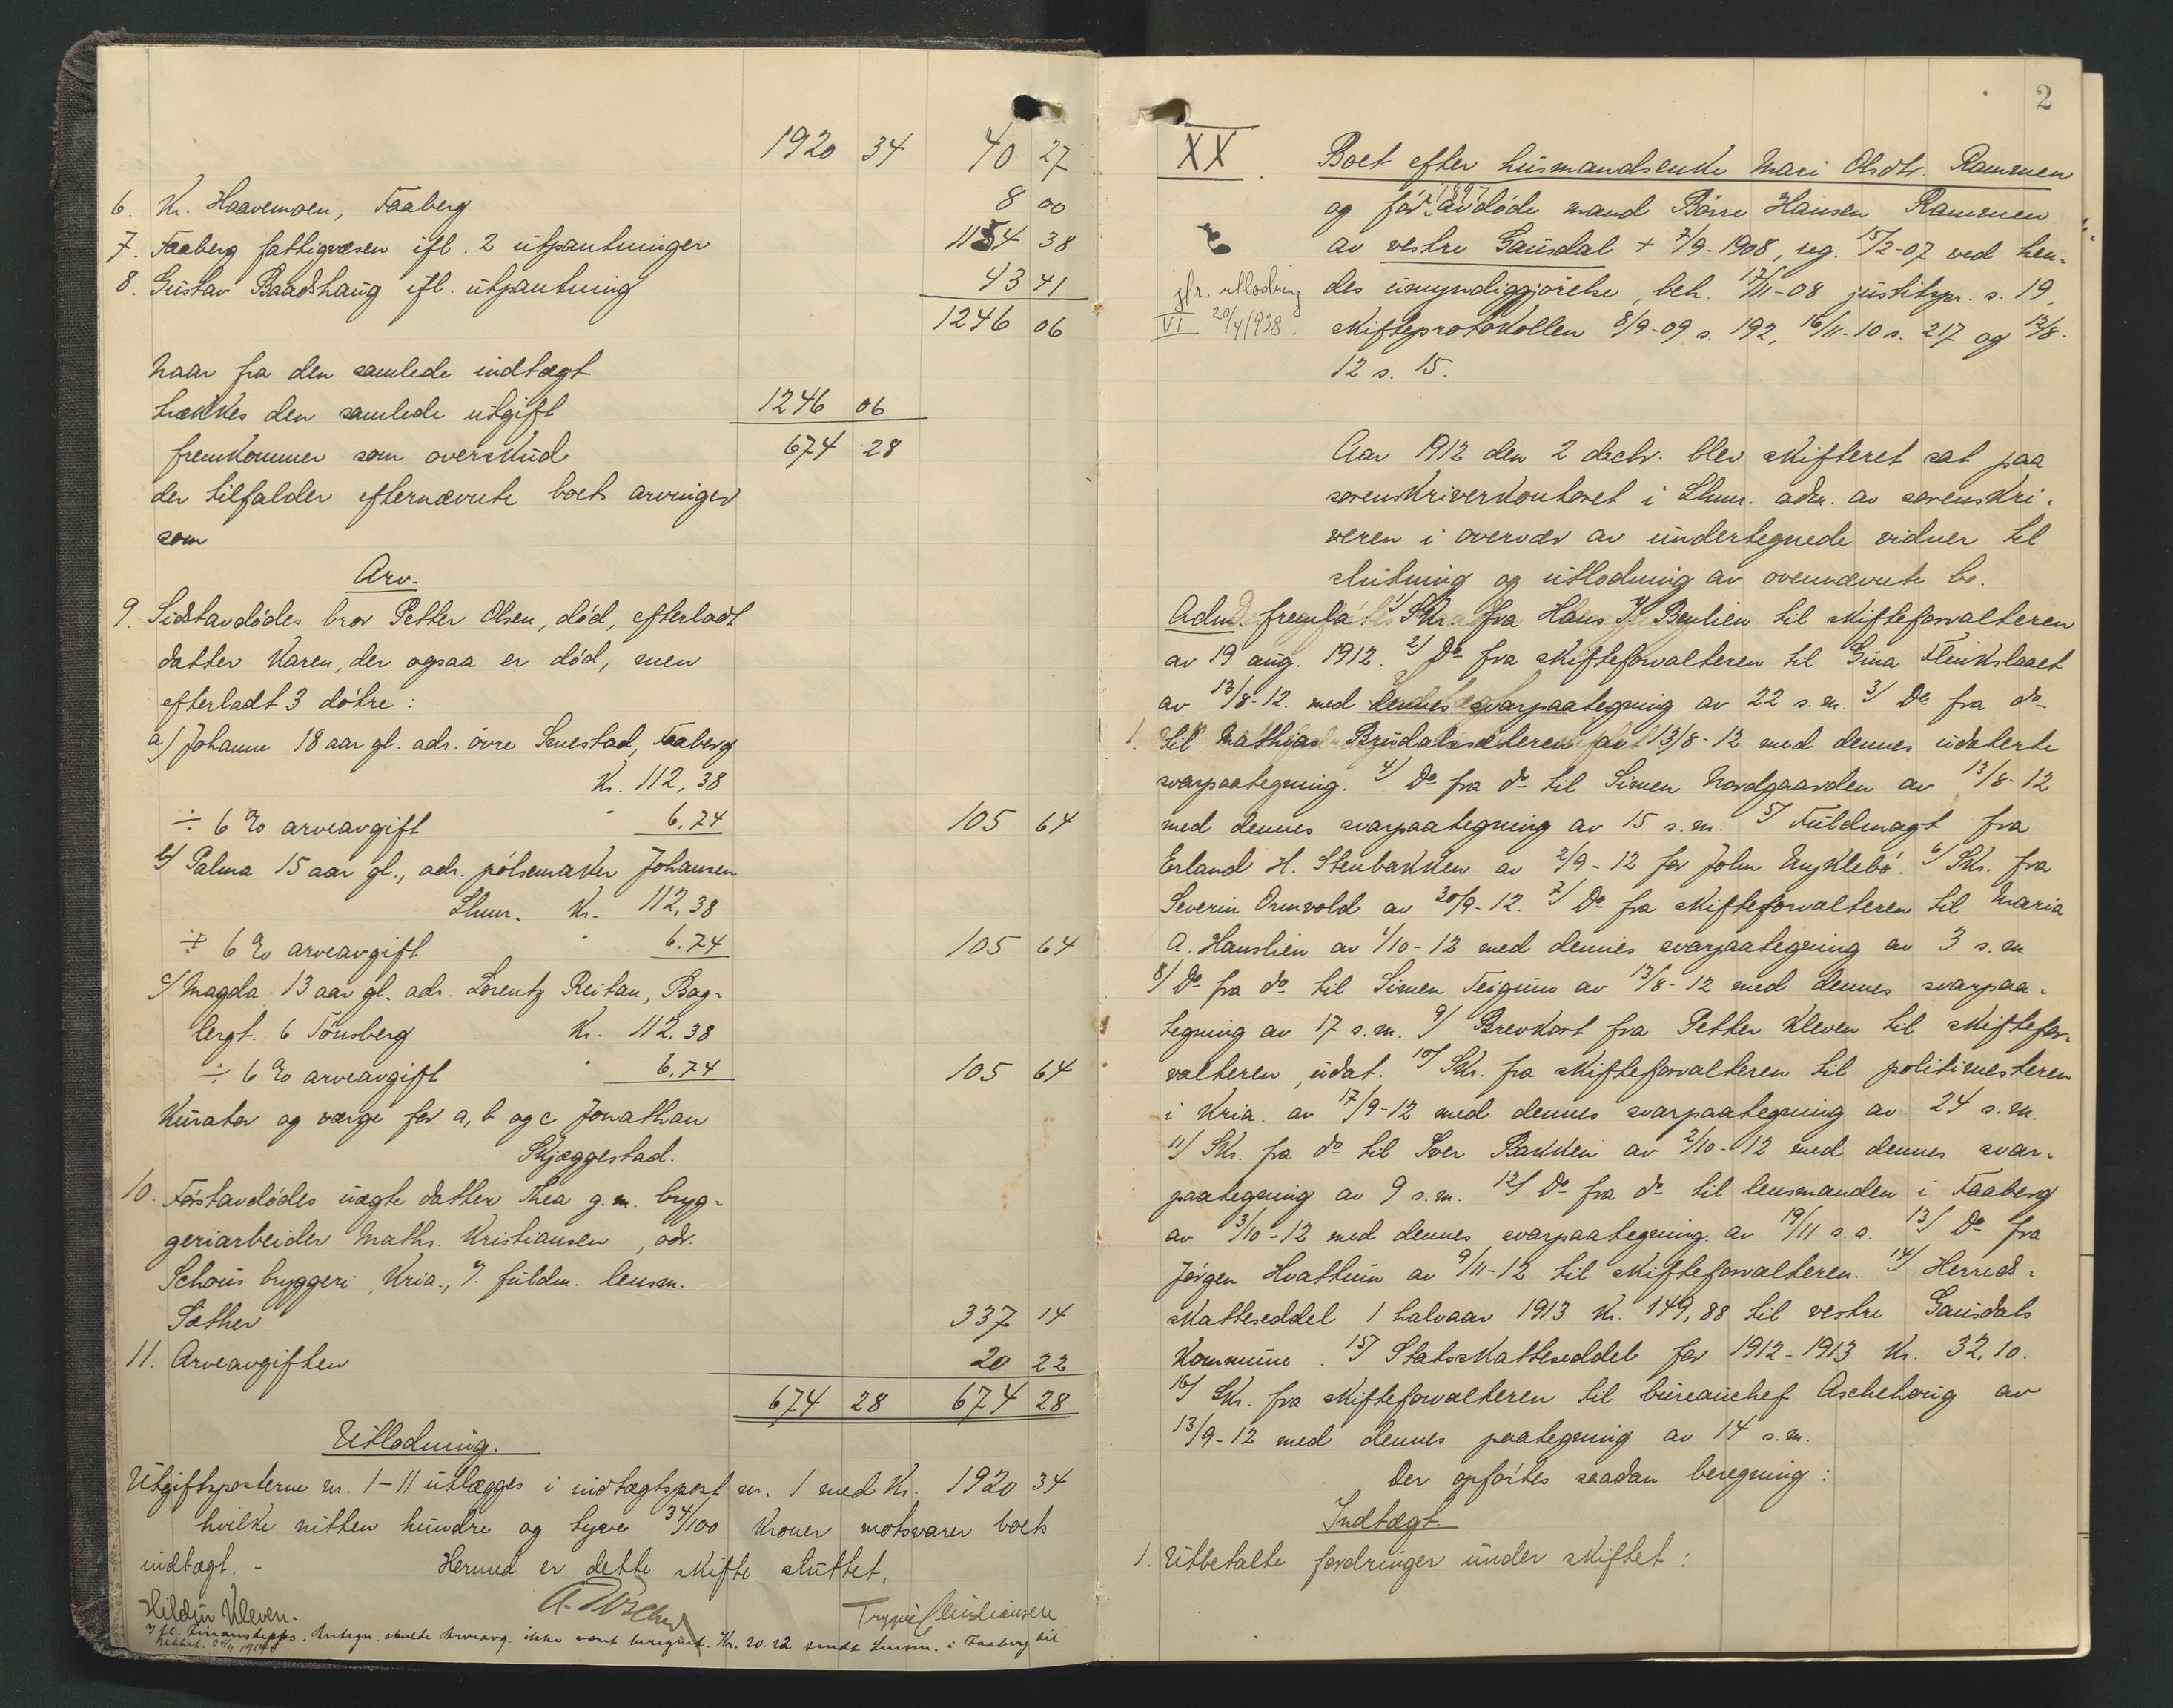 1920 34 40 27
6. Kr. Haavemoen, Faaberg 8 00
7. Faaberg fattigvæsen ifl. 2 utpantninger 1154 38
8. Gustav Baadshaug ifl. utpantning 43 41
1246 06
Naar fra den samlede indtægt
trækkes den samlede utgift 1246 06
fremkommer som overskud 674 28
der tilfalder efternævnte boets arvinger
som
Arv.
9. Sidstavdødes bror Petter Olsen, død, efterladt
datter Karen, der ogsaa er død, men
efterladt 3 døtre:
a/ Johanne 18 aar gl. adr. övre Smestad, Faaberg
Kr. 112,38
÷ 6 % arveavgift " 6.74 105 64
b/ Palma 15 aar gl., adr. pølsemaker Johansen
Lhmr. Kr. 112,38
÷ 6 % arveavgift " 6.74 105 64
c/ Magda 13 aar gl. adr. Lorentz Reitan, Bag-
lergt. 6 Tönsberg Kr. 112,38
÷ 6 % arveavgift " 6.74 105 64
Kurator og værge for a, b og c Jonathan
Skjæggestad.
10. Førstavdødes uægte datter Thea g. m. bryg-
geriarbeider Maths. Kristiansen, adr.
Schous bryggeri, Kria., fuldm. lensm.
Sæther 337 14
11. Arveavgiften 20 22
674 28 674 28
Utlodning.
Utgiftsposterne nr. 1-11 utlægges i indtægtspost nr. 1 med Kr. 1920 34
hvilke nitten hundre og tyve 34/100 kroner motsvarer boets
indtægt. - Hermed er dette skifte sluttet.
Hildur Kleven. Trygve Christiansen
Ifl. Finansdepts. skulde Arveavg. ikke vært beregnet. Kr. 20.22 sendt Lensm. i Faaberg til
24/11 19
2
XX. Boet efter husmandsenke Mari Olsdtr. Rammen
og før 1897 avdøde mand Börre Hansen Rammen
av vestre Gausdal + 7/9-1908, reg. 15/2-07 ved hen-
jfr. utlodning des umyndiggjørelse, beh. 17/11-08 justitspr. s. 19,
VI 20/4/938. skifteprotokollen 8/9-09 s. 192, 16/11-10 s. 217 og 12/8-
12 s. 15.
Aar 1912 den 2 decbr. blev skifteret sat paa
sorenskriverkontoret i Lhmr. adm. av sorenskri-
veren i overvær av undertegnede vidner til
slutning og utlodning av ovennævnte bo.
Adm. fremla: 1/ Skr. fra Hans J. Beylien til skifteforvalteren
av 19 aug. 1912. 2/ Do fra skifteforvalteren til Gina Flinkslaaet
av 13/8-12. med dennes svarpaategning av 22 s. m. 3/ Do fra do
1. til Mathias Brudalssæteren av 13/8-12 med dennes udaterte
svarpaategning. 4/ Do fra do til Simen Nordgaarden av 13/8-12
med dennes svarpaategning av 15 s. m. 5/ Fuldmagt fra
Erland H. Stenbakken av 2/9-12 for John Myklebö. 6/ Skr. fra
Severin Ormvold av 30/9-12. 7/ Do fra skifteforvalteren til Maria
A. Hauslien av 1/10-12 med dennes svarpaategning av 3 s. m.
8/ Do fra do til Simen Teigum av 13/8-12 med dennes svarpaa-
tegning av 17 s. m. 9/ Brevkort fra Petter Kleven til skiftefor-
valteren, udat. 10/ Skr. fra skifteforvalteren til politimesteren
i Kria. av 17/9-12 med dennes svarpaategning av 24 s. m.
11/ Skr. fra do til Iver Bakken av 2/10-12 med dennes svar-
paategning av 9 s. m. 12/ Do fra do til lensmanden i Faaberg
av 3/10-12 med dennes svarpaategning av 19/11 s. a. 13/ Do fra
Jörgen Hvattum av 9/11-12 til skifteforvalteren. 14/ Herreds-
skatteseddel 1 halvaar 1913 Kr. 149,88 til vestre Gausdals
kommune. 15/ Statsskatteseddel for 1912-1913 Kr. 32,10.
16/ Skr. fra skifteforvalteren til bureauchef Aschehoug av
13/9-12 med dennes paategning av 14 s. m.
Der opførtes saadan beregning:
Indtægt.
1. Utbetalte fordringer under skiftet: